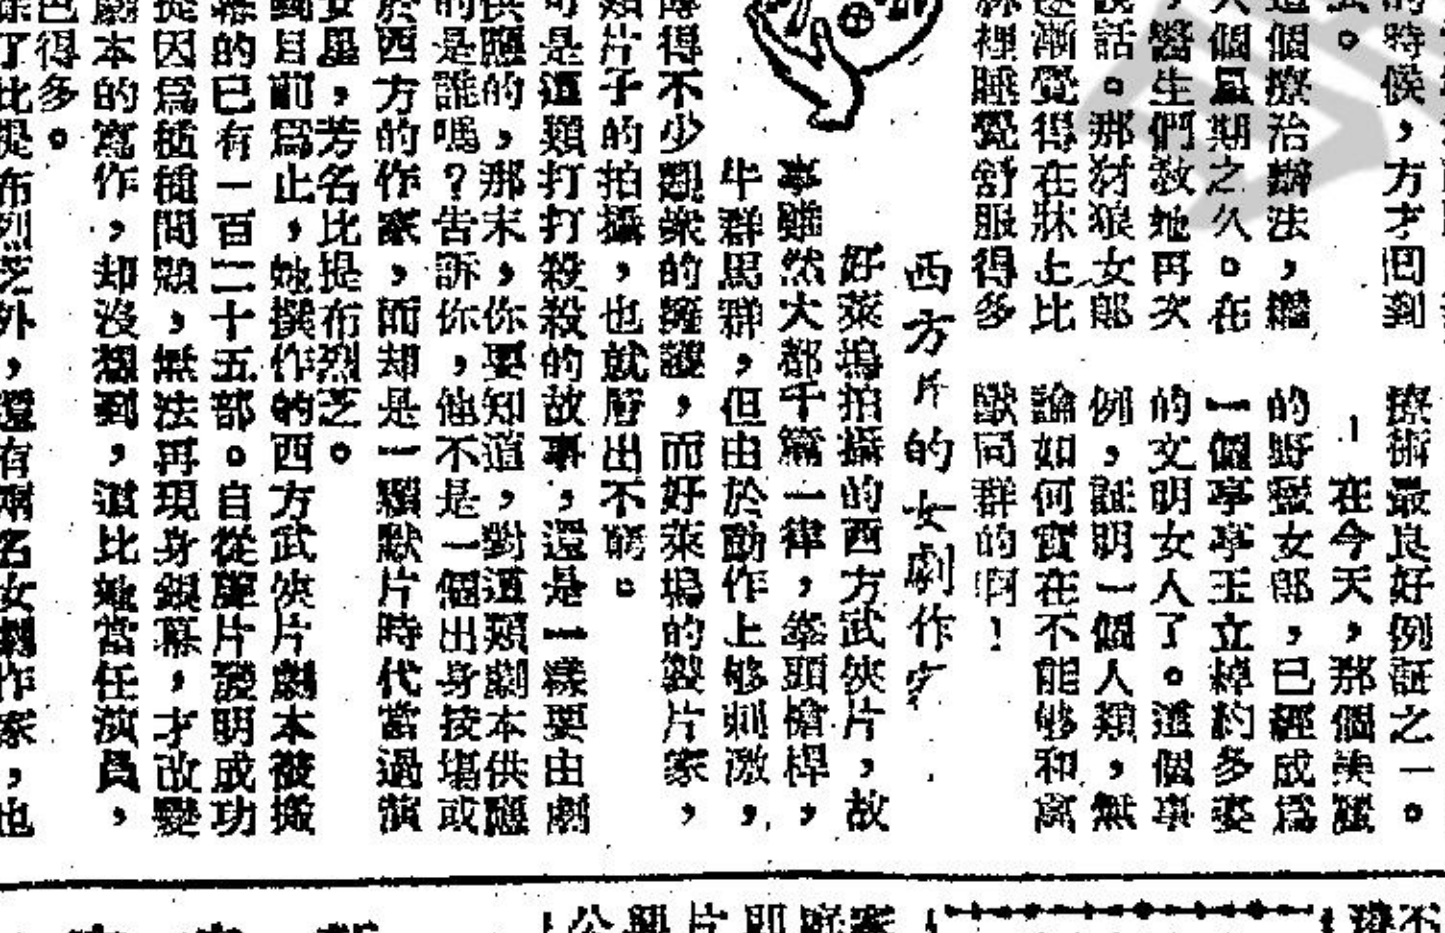 的時候，方才回到
。
這個療治辦法，繼
個星期之久。在
，醫生們教她再次
說話。那豺狼女郎
逐漸覺得在牀上比
裡睡覺舒服得多
療術最良好例証之一。
！在今天，那個美麗
的野蠻女郎，已經成爲
一個亭亭玉立綽約多姿
的文明女人了。這個事
例，証明一個人類，無
論如何實在不能够和禽
獸同群的啊！
西方片的女劇作家
好萊塢拍攝的西方武俠片，故
事雖然大都千篇一律，拳頭槍桿，
牛群馬群，但由於動作上够刺激，
博得不少觀衆的擁護，而好萊塢的製片家，
類片子的拍攝，也就層出不窮。
可是這類打打殺殺的故事，還是一樣要由劇
供應的，那末，你要知道，對這類劇本供應
的是誰嗎？告訴你，他不是一個出身技塲或
於西方的作家，而却是一顆默片時代當過演
女星，芳名比提布烈芝。
到目前爲止，她撰作的西方武俠片劇本被搬
幕的已有一百二十五部。自從聲片發明成功
從因爲種種問題，無法再現身銀幕，才改變
劇本的寫作，却沒想到，這比她當任演員，
色得多。
除了比提布烈芝外，還有兩名女劇作家，也